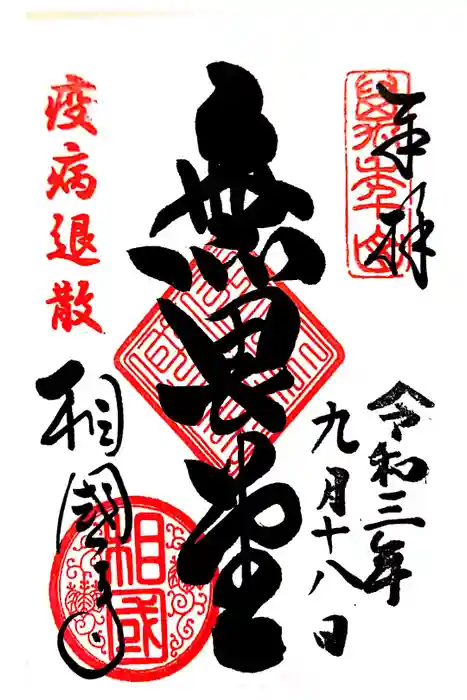 奉拝
萬年山
令和三年
九月十八日
無畏堂
疫病退散
相國寺
相國